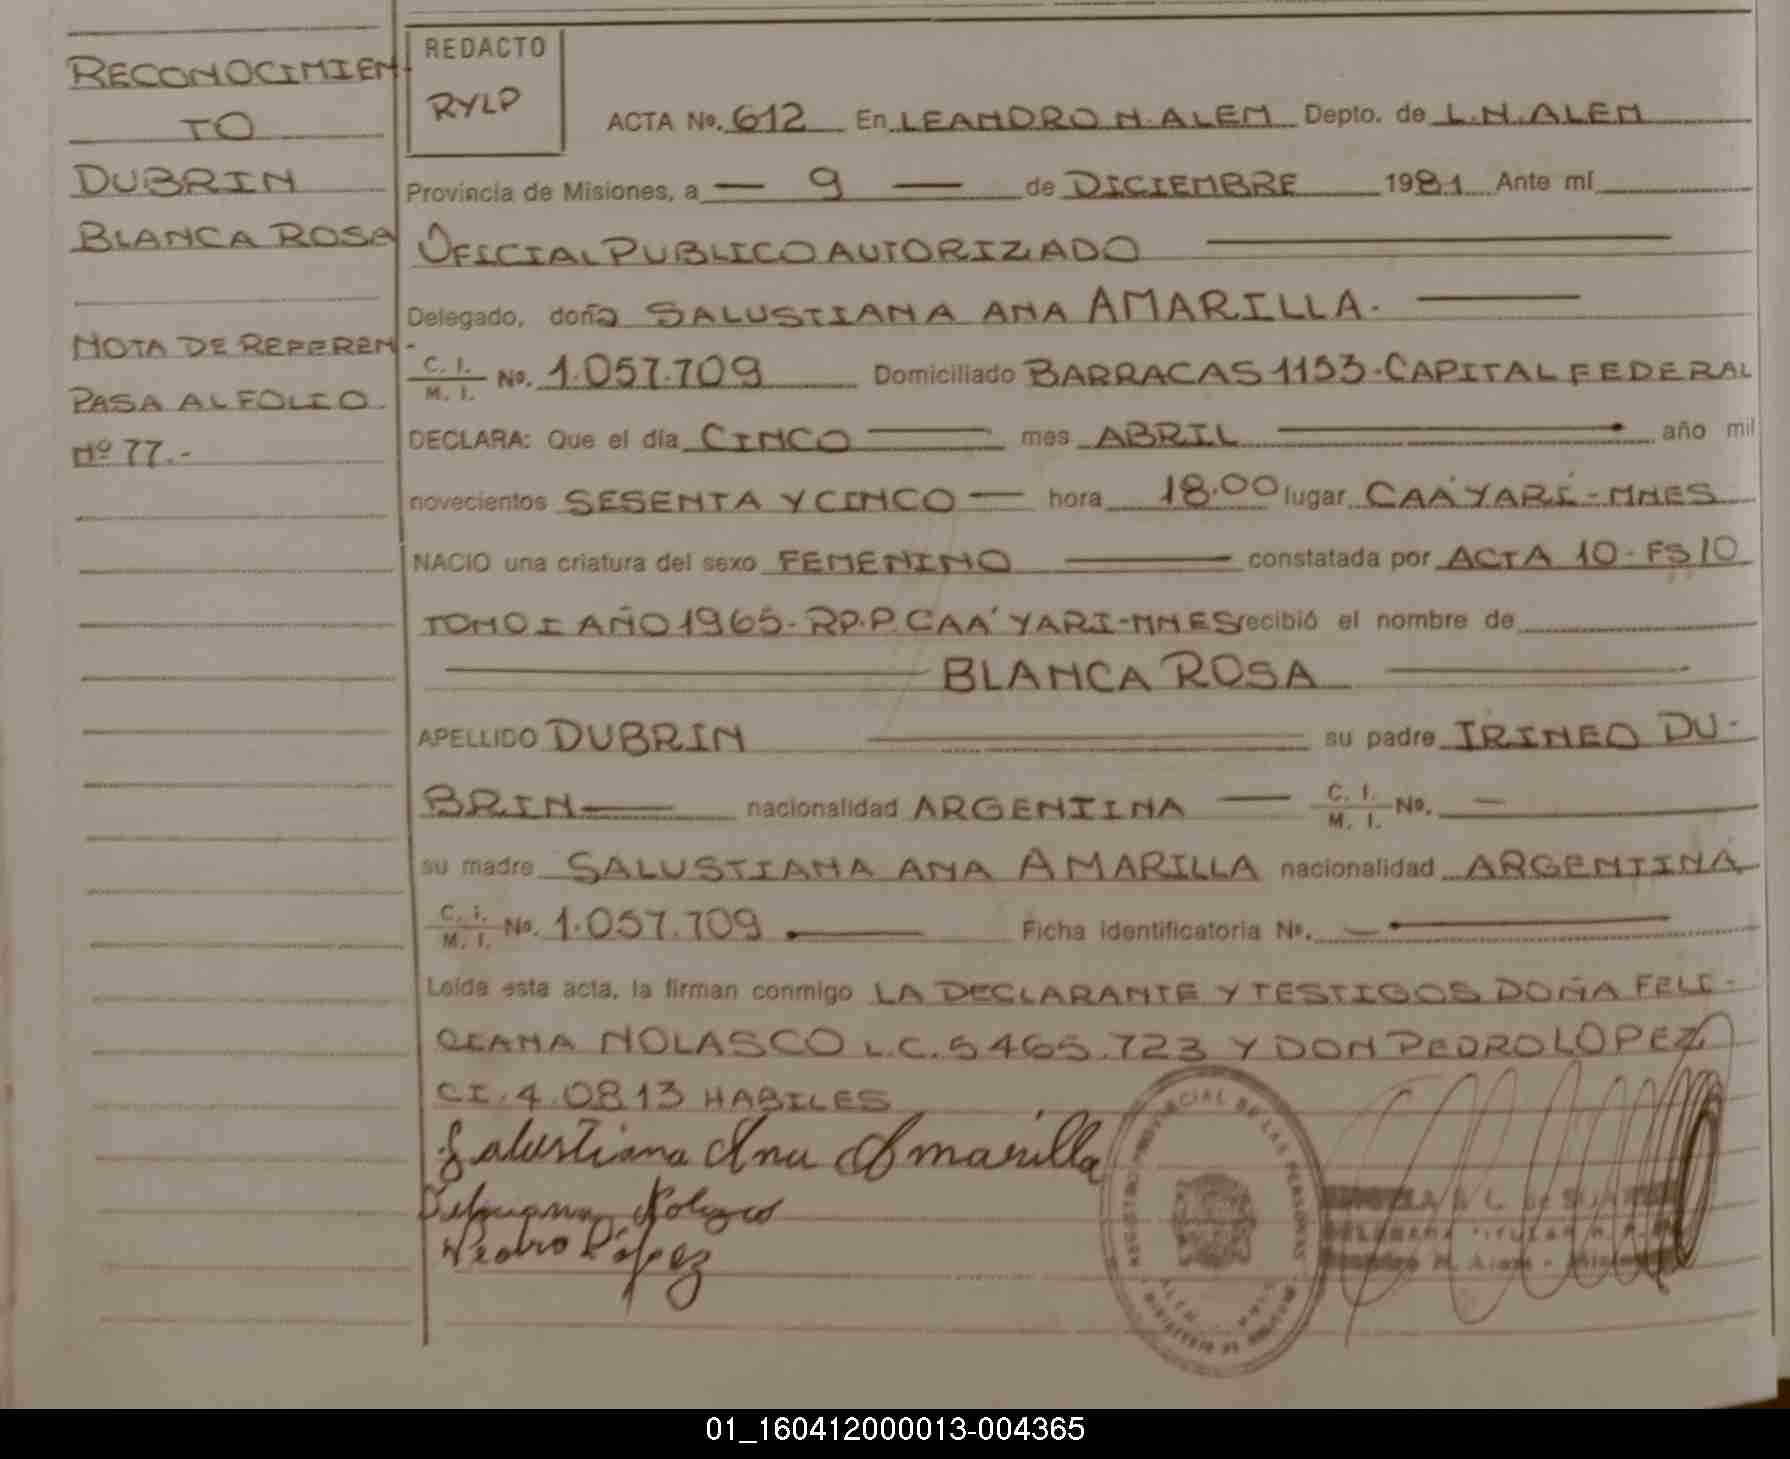 RECONOCIMIEN-
TO
DUBRIN
BLANCA ROSA
NOTA DE REFEREN-
PASA AL FOLIO
Nº 77.-
REDACTO
RYLP
ACTA Nº. 612 En LEANDRO N. ALEM Depto. de L.N. ALEM
Provincia de Misiones, a — 9 — de DICIEMBRE 1981 Ante mí
OFICIAL PUBLICO AUTORIZADO
Delegado, doña SALUSTIANA ANA AMARILLA.
C. I. M. I. Nº. 1.057.709 Domiciliado BARRACAS 1153-CAPITAL FEDERAL
DECLARA: Que el día CINCO mes ABRIL año mil
novecientos SESENTA Y CINCO — hora 18.00 lugar CAA YARÍ-MNES
NACIO una criatura del sexo FEMENINO constatada por ACTA 10-FS 10
TOMO I AÑO 1965-RP.P. CAA' YARI-MNES recibió el nombre de
BLANCA ROSA
APELLIDO DUBRIN su padre IRINEO DU-
BRIN nacionalidad ARGENTINA — C. I. M. I. Nº. —
su madre SALUSTIANA ANA AMARILLA nacionalidad ARGENTINA
C. I. M. I. Nº. 1.057.709 Ficha identificatoria Nº. —
Leída esta acta, la firman conmigo LA DECLARANTE Y TESTIGOS DOÑA FELI-
CIANA NOLASCO L.C. 5465.723 Y DON PEDRO LOPEZ
CI. 4.0813 HABILES
Salustiana Ana Amarilla
Nolasco
Pedro López
REGISTRO PROVINCIAL DE LAS PERSONAS
MINISTERIO DE GOBIERNO
L. de
TITULAR
N. Alem - Misiones
01_160412000013-004365